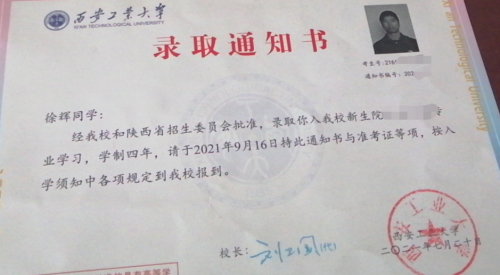 西安工业大学
XI'AN TECHNOLOGICAL UNIVERSITY
录取通知书
考生号:2161
通知书编号:202
徐辉同学：
经我校和陕西省招生委员会批准，录取你入我校新生院
业学习，学制四年，请于2021年9月16日持此通知书与准考证等项，按入
学须知中各项规定到我校报到。
校长：
西安工业大学
二〇二一年七月二十日